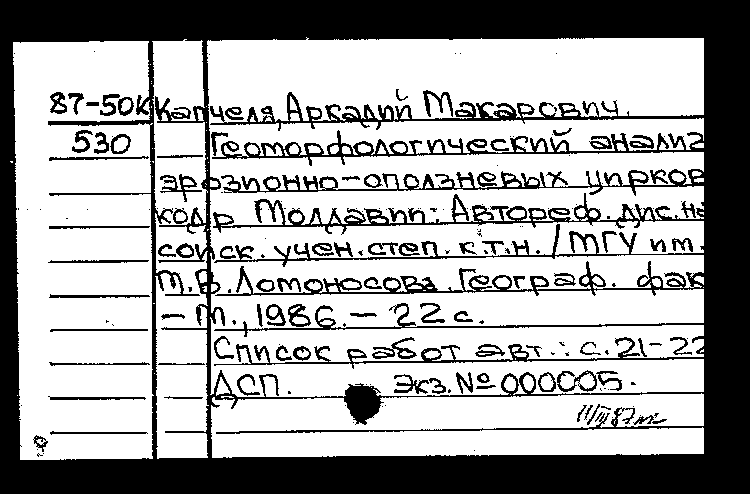 87-50К Капчеля, Аркадий Макарович.
530 Геоморфологический анализ
эрозионно-оползневых цирков
кодр Молдавии: Автореф. дис. на
соиск. учен. степ. к.г.н. / МГУ им.
М.В. Ломоносова. Географ. фак
– М., 1986. – 22 с.
Список работ авт.: с. 21-22
ДСП. Экз. № 000005.